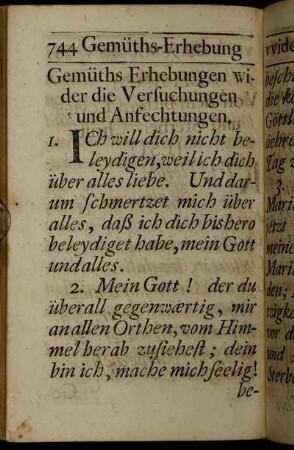 744 Gemüths-Erhebung
Gemüths Erhebungen wi-
der die Versuchungen
und Anfechtungen.
1. ICh will dich nicht be-
leydigen, weil ich dich
über alles liebe. Und dar-
um schmertzet mich über
alles, daß ich dich bishero
beleydiget habe, mein Gott
und alles.
2. Mein Gott! der du
überall gegenwærtig, mir
an allen Orthen, vom Him-
mel herab zusiehest; dein
bin ich, mache mich seelig!
be-
vvide
besch
die
Göttl
Tag
3.
Mari
jetzt
meine
Mari
den;
vor d
und
Sterbe